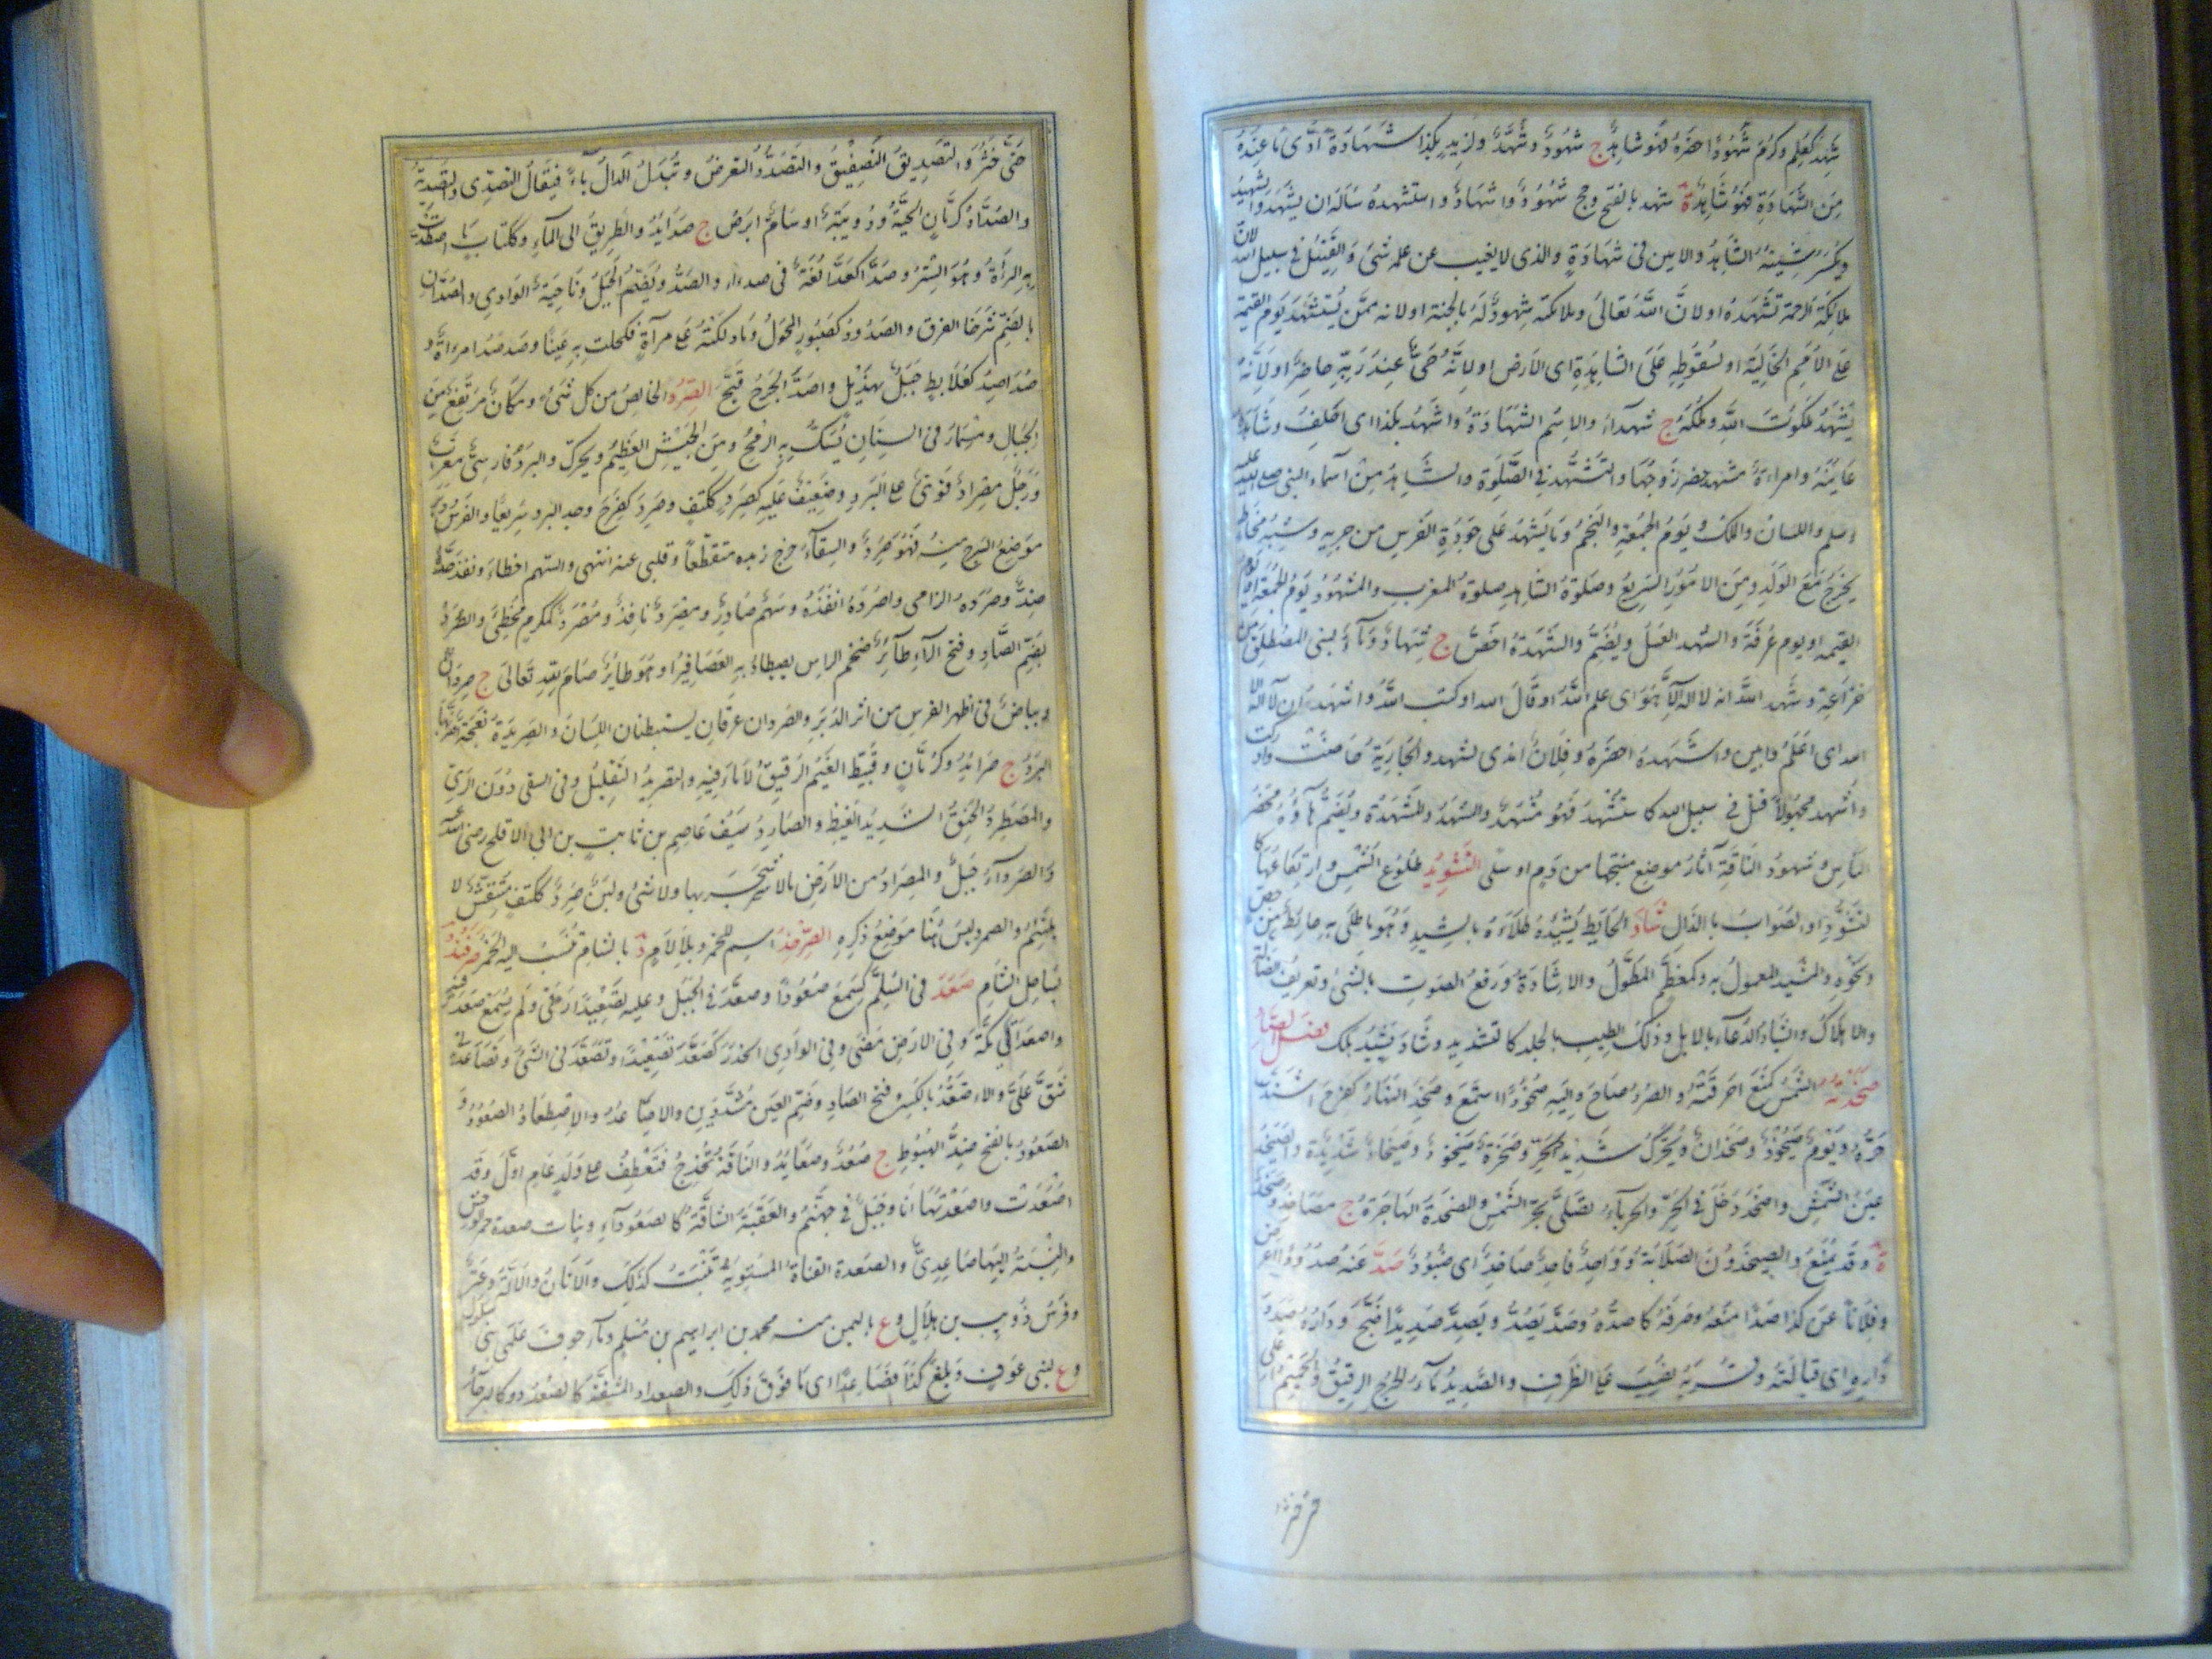 شَهِدَ كَعَلِمَ وَكَرُمَ شُهُودًا حضره فهو شاهد ج شهود وشهد ولزيد بكذا شهادة ادى ما عنده
من الشهادة فهو شاهد ة شهد بالفتح وجج شهود واشهاد واستشهده ساله ان يشهد والشهيد
ويكسر شينه الشاهد والامين في شهادة والذى لا يغيب عن علمه شئ والقتيل في سبيل الله لان
ملائكة الرحمة تشهده او لان الله تعالى وملائكته شهود له بالجنة او لانه ممن يستشهد يوم القيمة
على الامم الخالية او لسقوطه على الشاهدة اى الارض او لانه حى عند ربه حاضر او لانه
يشهد ملكوت الله وملكه ج شهدآء والاسم الشهادة واشهد بكذا اى احلف وشاهده
عاينه وامراءة مشهد حضر زوجها والتشهد في الصلوة والشاهد من اسماء النبى صلى الله عليه
وسلم واللسان والملك ويوم الجمعة والنجم وما يشهد على جودة الفرس من جريه وشبه مخاط
يخرج مع الولد ومن الامور السريع وصلوة الشاهد صلوة المغرب والمشهود يوم الجمعة او يوم
القيمه او يوم عرفة والشهد العسل ويضم والشهدة اخص ج شهاد ومآء لبنى المصطلق من
خزاعة وشهد الله انه لا اله الا هو اى علم الله او قال الله او كتب الله واشهد ان لا اله الا
الله اى اعلم وابين واشهده احضره وفلان امذى كشهد والجارية حاضت وادركت
واشهد مجهولا قتل في سبيل الله كاستشهد فهو مشهد والمشهد والمشهدة ويضم هاؤه محضر
الناس وشهود الناقة آثار موضع منتجها من دم او سلى التشويد طلوع الشمس وارتفاعها كا
لتشود او الصواب بالذال شاد الحايط يشيده طلاءه بالشيد وهو ما طلى به حايط من جص
ونحوه والمشيد المعمول به وكمعظم المطول والاشادة ورفع الصوت بالشئ وتعريف الضالة
والاهلاك والشياد الدعآء بالابل ودلك الطيب بالجلد كالتشييد وشاد يشيد هلك فصل الصاد
صخدته الشمس كمنع احرقته والصرد صاح واليه صخودا استمع وصخد النهار كفرح اشتد
حره ويوم صيخود وصخدان ويحرك شديد الحر وصخرة صيخود وصيخاد شديدة والصيخد
عين الشمس واصخد دخل في الحر والحربآء تصلى بحر الشمس والصخدة الهاجرة ج مصاخد وصخد
ة وقد يمنع والصيخدون الصلابة وواحد قاحد صاخد اى صنبود صد عنه صدودا اعرض
وفلانا عن كذا صدا منعه وصرفه كاصده وصد يصد ويصد صديدا ضج وداره صدد
داره اى قبالته وقربه نصب على الظرف والصديد مآء الجرح الرقيق والحميم اغلى
حتى خثر
حتى خثر والتصديق التصفيق والتصدد التعرض وتبدل الدال يآء فيقال التصدى والتصدية
والصداد كرمان الحية ودويبة او سام ابرص ج صدايد والطريق الى المآء وككتاب ما اصطدت
به المرأة وهو الستر وصدآء كعدآء لغة في صدءاء والصد ويضم الجبل وناحية الوادى والصدان
بالضم شرخا الفوق والصدود كصبور المجول وما دلكته على مرآة فكحلت به عينا وصدصد امراءة و
صداصد كعلابط جبل لهذيل واصد الجرح قيح الصرد الخالص من كل شئ ومكان مرتفع من
الجبال ومسمار في السنان يشك به الرمح ومن الجيش العظيم ويحرك والبرد فارسى معرب
ورجل مصراد قوى على البرد وضعيف عليه كصرد ككتف وصرد كفرح وجد البرد سريعا والفرس دبر
موضع السرج منه فهو صرد والسقآء خرج زبده متقطعا وقلبى عنه انتهى والسهم اخطاء ونفذ حده
ضد وصرده الرامى واصرده انفذه وسهم صارد ومصراد نافذ ومصرد كمكرم مخطئ والصرد
بضم الصاد وفتح الرآء طآئر ضخم الراس يصطاد به العصافير او هو طاير صام لله تعالى ج صردان
وبياض في ظهر الفرس من اثر الدبر والصردان عرقان يستبطنان اللسان والصريدة نعجة اضر بها
البرد ج صرائد وكرمان وقبيط الغيم الرقيق لا مآء فيه والتصريد التقليل وفى السقى دون الرى
والمصطرد الحنق الشديد الغيظ والصارد سيف عاصم بن ثابت بن ابى الاقلح رضى الله عنه
والصردآء جبل والمصراد من الارض مالا شجر بها ولا شئ ولبن صرد ككتف منتفش لا
يلتئم والصمرد ليس هنا موضع ذكره الصرخد اسم للخمر وبلا لام د بالشام تنسب اليه الخمر صرفند
بساحل الشام صعد في السلم كسمع صعودا وصعد في الجبل وعليه تصعيدا رقى ولم يسمع صعد فيه
واصعد اتى مكة وفى الارض مضى وفى الوادى انحدر كصعد تصعيدا وتصعدنى الشئ وتصاعدنى
شق على والاصعد بالكسر وفتح الصاد وضم العين مشددين والاصاعد والاصطعاد الصعود و
الصعود بالفتح ضد الهبوط ج صعد وصعايد والناقة تخدج فتعطف على ولد عام اول وقد
اصعدت واصعدتها انا وجبل في جهنم والعقبة الشاقة كالصعودآء وبنات صعدة حمر الوحش
والنسبة اليها صاعدى والصعدة القناة المستوية تنبت كذلك والاتان والالة وعنز
وفرس ذويب بن هلال وع باليمن منه محمد بن ابراهيم بن مسلم ومآء جوف علمى بنى سلول
وع لبنى عوف وبلغ كذا فصاعدا اى ما فوق ذلك والصعداء المشقة كالصعدد وكالبرحآء